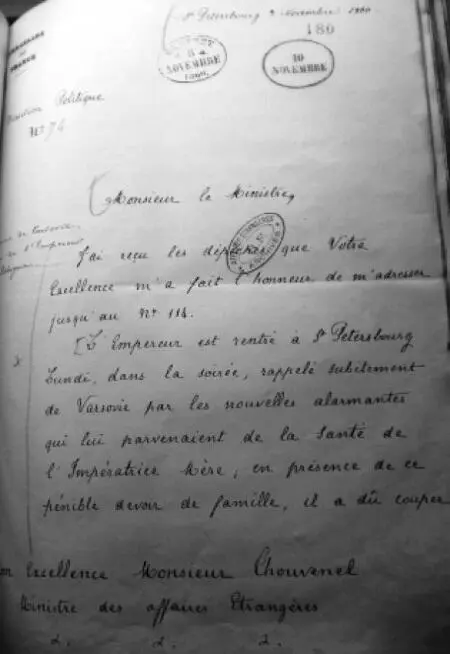 FRANCE
St Petersbourg 2 Novembre 1860
180
8
NOVEMBRE
1860
10
NOVEMBRE
Direction Politique
No 74
Monsieur le Ministre,
J'ai reçu les dépêches que Votre
Excellence m'a fait l'honneur de m'adresser
jusqu'au No 118.
[L'Empereur est rentré à St Petersbourg
Lundi, dans la soirée, rappelé subitement
de Varsovie par les nouvelles alarmantes
qui lui parvenaient de la Santé de
l'Impératrice Mère; en présence de ce
pénible devoir de famille, il a dû couper
Excellence Monsieur Thouvenel
Ministre des affaires Etrangères